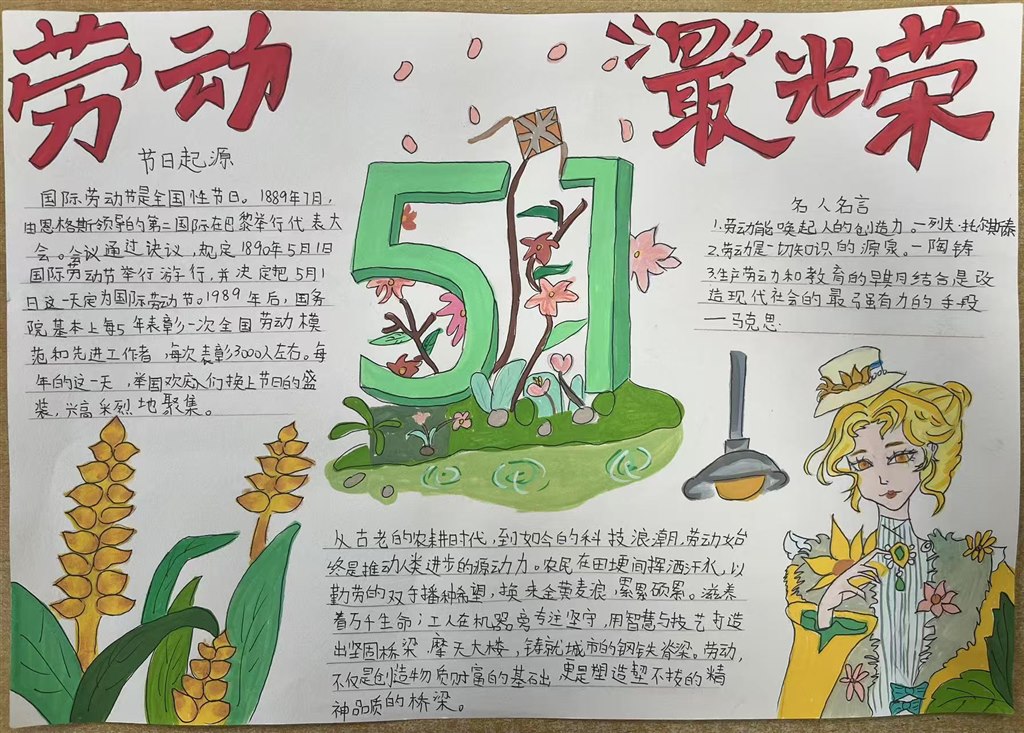 劳动 最光荣
节日起源
国际劳动节是全国性节日。1889年7月,
由恩格斯领导的第二国际在巴黎举行代表大
会。会议通过决议,规定1890年5月1日
国际劳动节举行游行,并决定把5月1
日这一天定为国际劳动节。1989年后,国务
院基本上每5年表彰一次全国劳动模
范和先进工作者,每次表彰3000人左右。每
年的这一天,举国欢庆人们换上节日的盛
装,兴高采烈地聚集。
51
名人名言
1.劳动能唤起人的创造力。一列夫·托尔斯泰
2.劳动是一切知识的源泉。一陶铸
3.生产劳动和教育的早期结合是改
造现代社会的最强有力的手段
一马克思
从古老的农耕时代,到如今的科技浪潮,劳动始
终是推动人类进步的源动力。农民在田埂间挥洒汗水,以
勤劳的双手播种希望,换来金黄麦浪,累累硕累。滋养
着万千生命;工人在机器旁专注坚守,用智慧与技艺打造
出坚固桥梁、摩天大楼,铸就城市的钢铁脊梁。劳动,
不仅是创造物质财富的基础 更是塑造的精
神品质的桥梁。